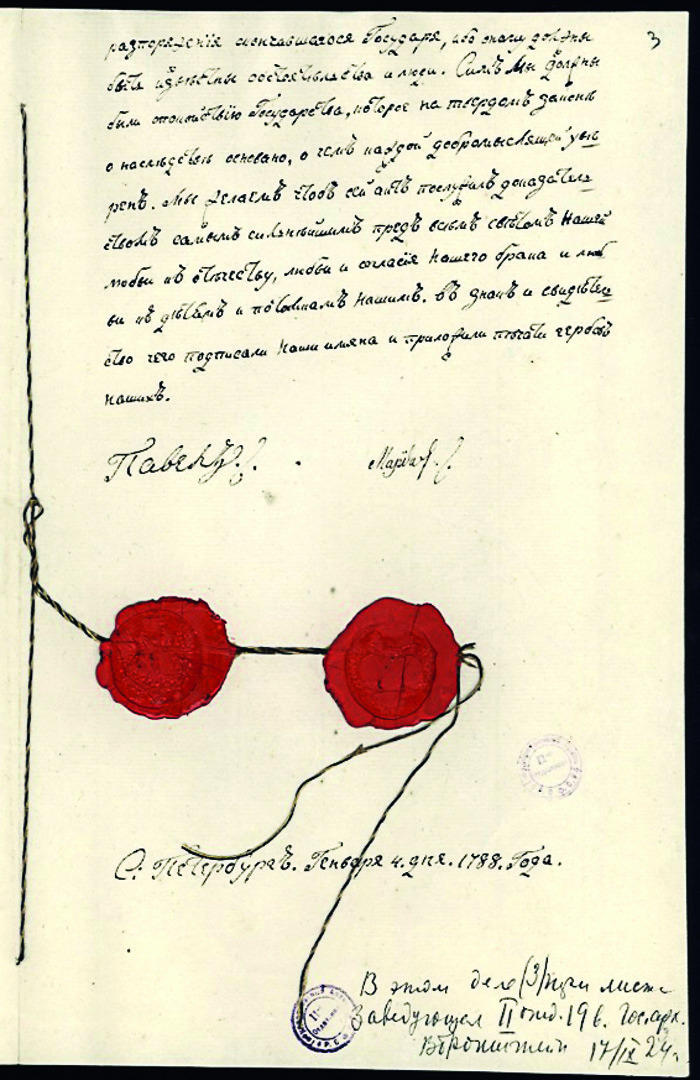 3
разпоряженія скончавшагося Государя, ибо оному должны
быть извѣстны обстоятельства и люди. Симъ Мы должны
были спокоиствію Государства, которое на твердомъ законѣ
о наслѣдствѣ основано, о чемъ каждой добромыслящей увѣ
ренъ. Мы желаемъ чтобъ сей актъ послужилъ доказатель
ствомъ самымъ силнѣйшимъ предъ всѣмъ свѣтомъ Нашей
любви къ отечеству, любви и согласія Нашего брака и люб
ви къ дѣтямъ и потомкамъ Нашимъ. въ знакъ и свидѣтель
ство чего подписали Наши имяна и приложили печати гербовъ
нашихъ.
Павелъ
Марія
С: Петербургъ. Генваря 4. дня. 1788. Года.
В этом деле (3) три листа
Заведующая II отд. 19 в. Гос. арх.
17/IX 24 г.